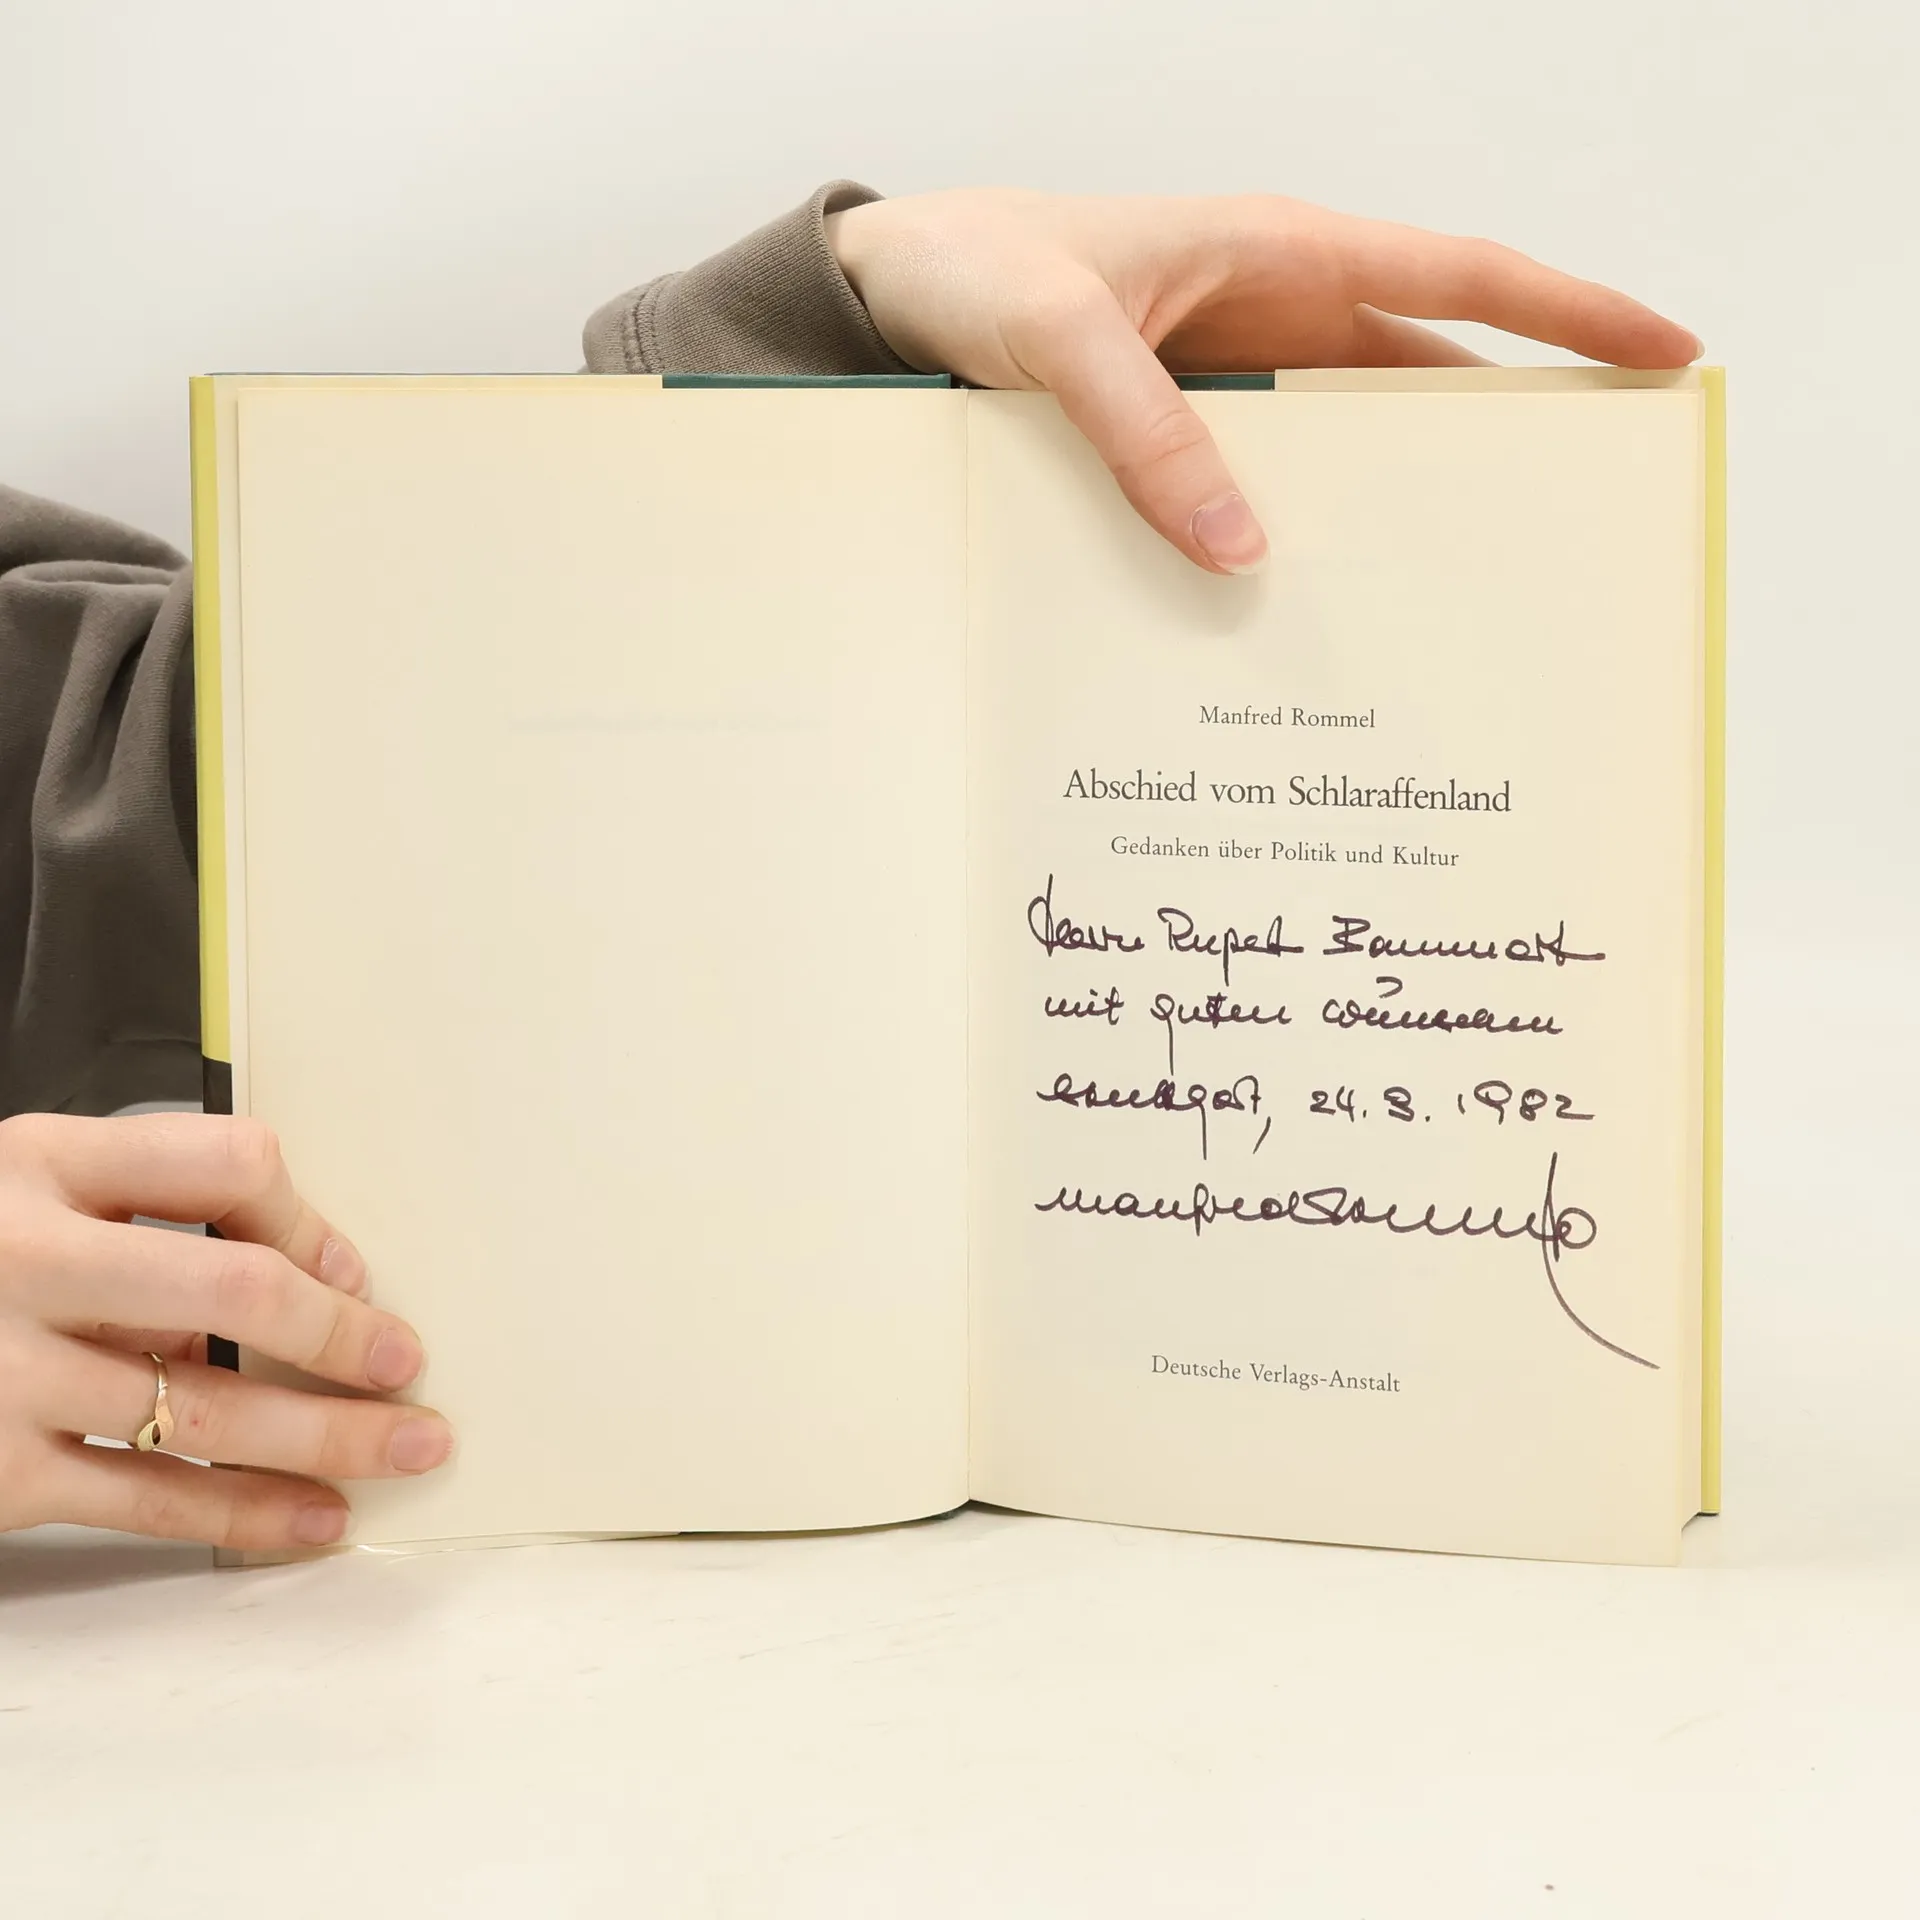 Manfred Rommel
Abschied vom Schlaraffenland
Gedanken über Politik und Kultur
Herrn Rupert
mit guten Wünschen
Stuttgart, 24. 3. 1982
Manfred Rommel
Deutsche Verlags-Anstalt